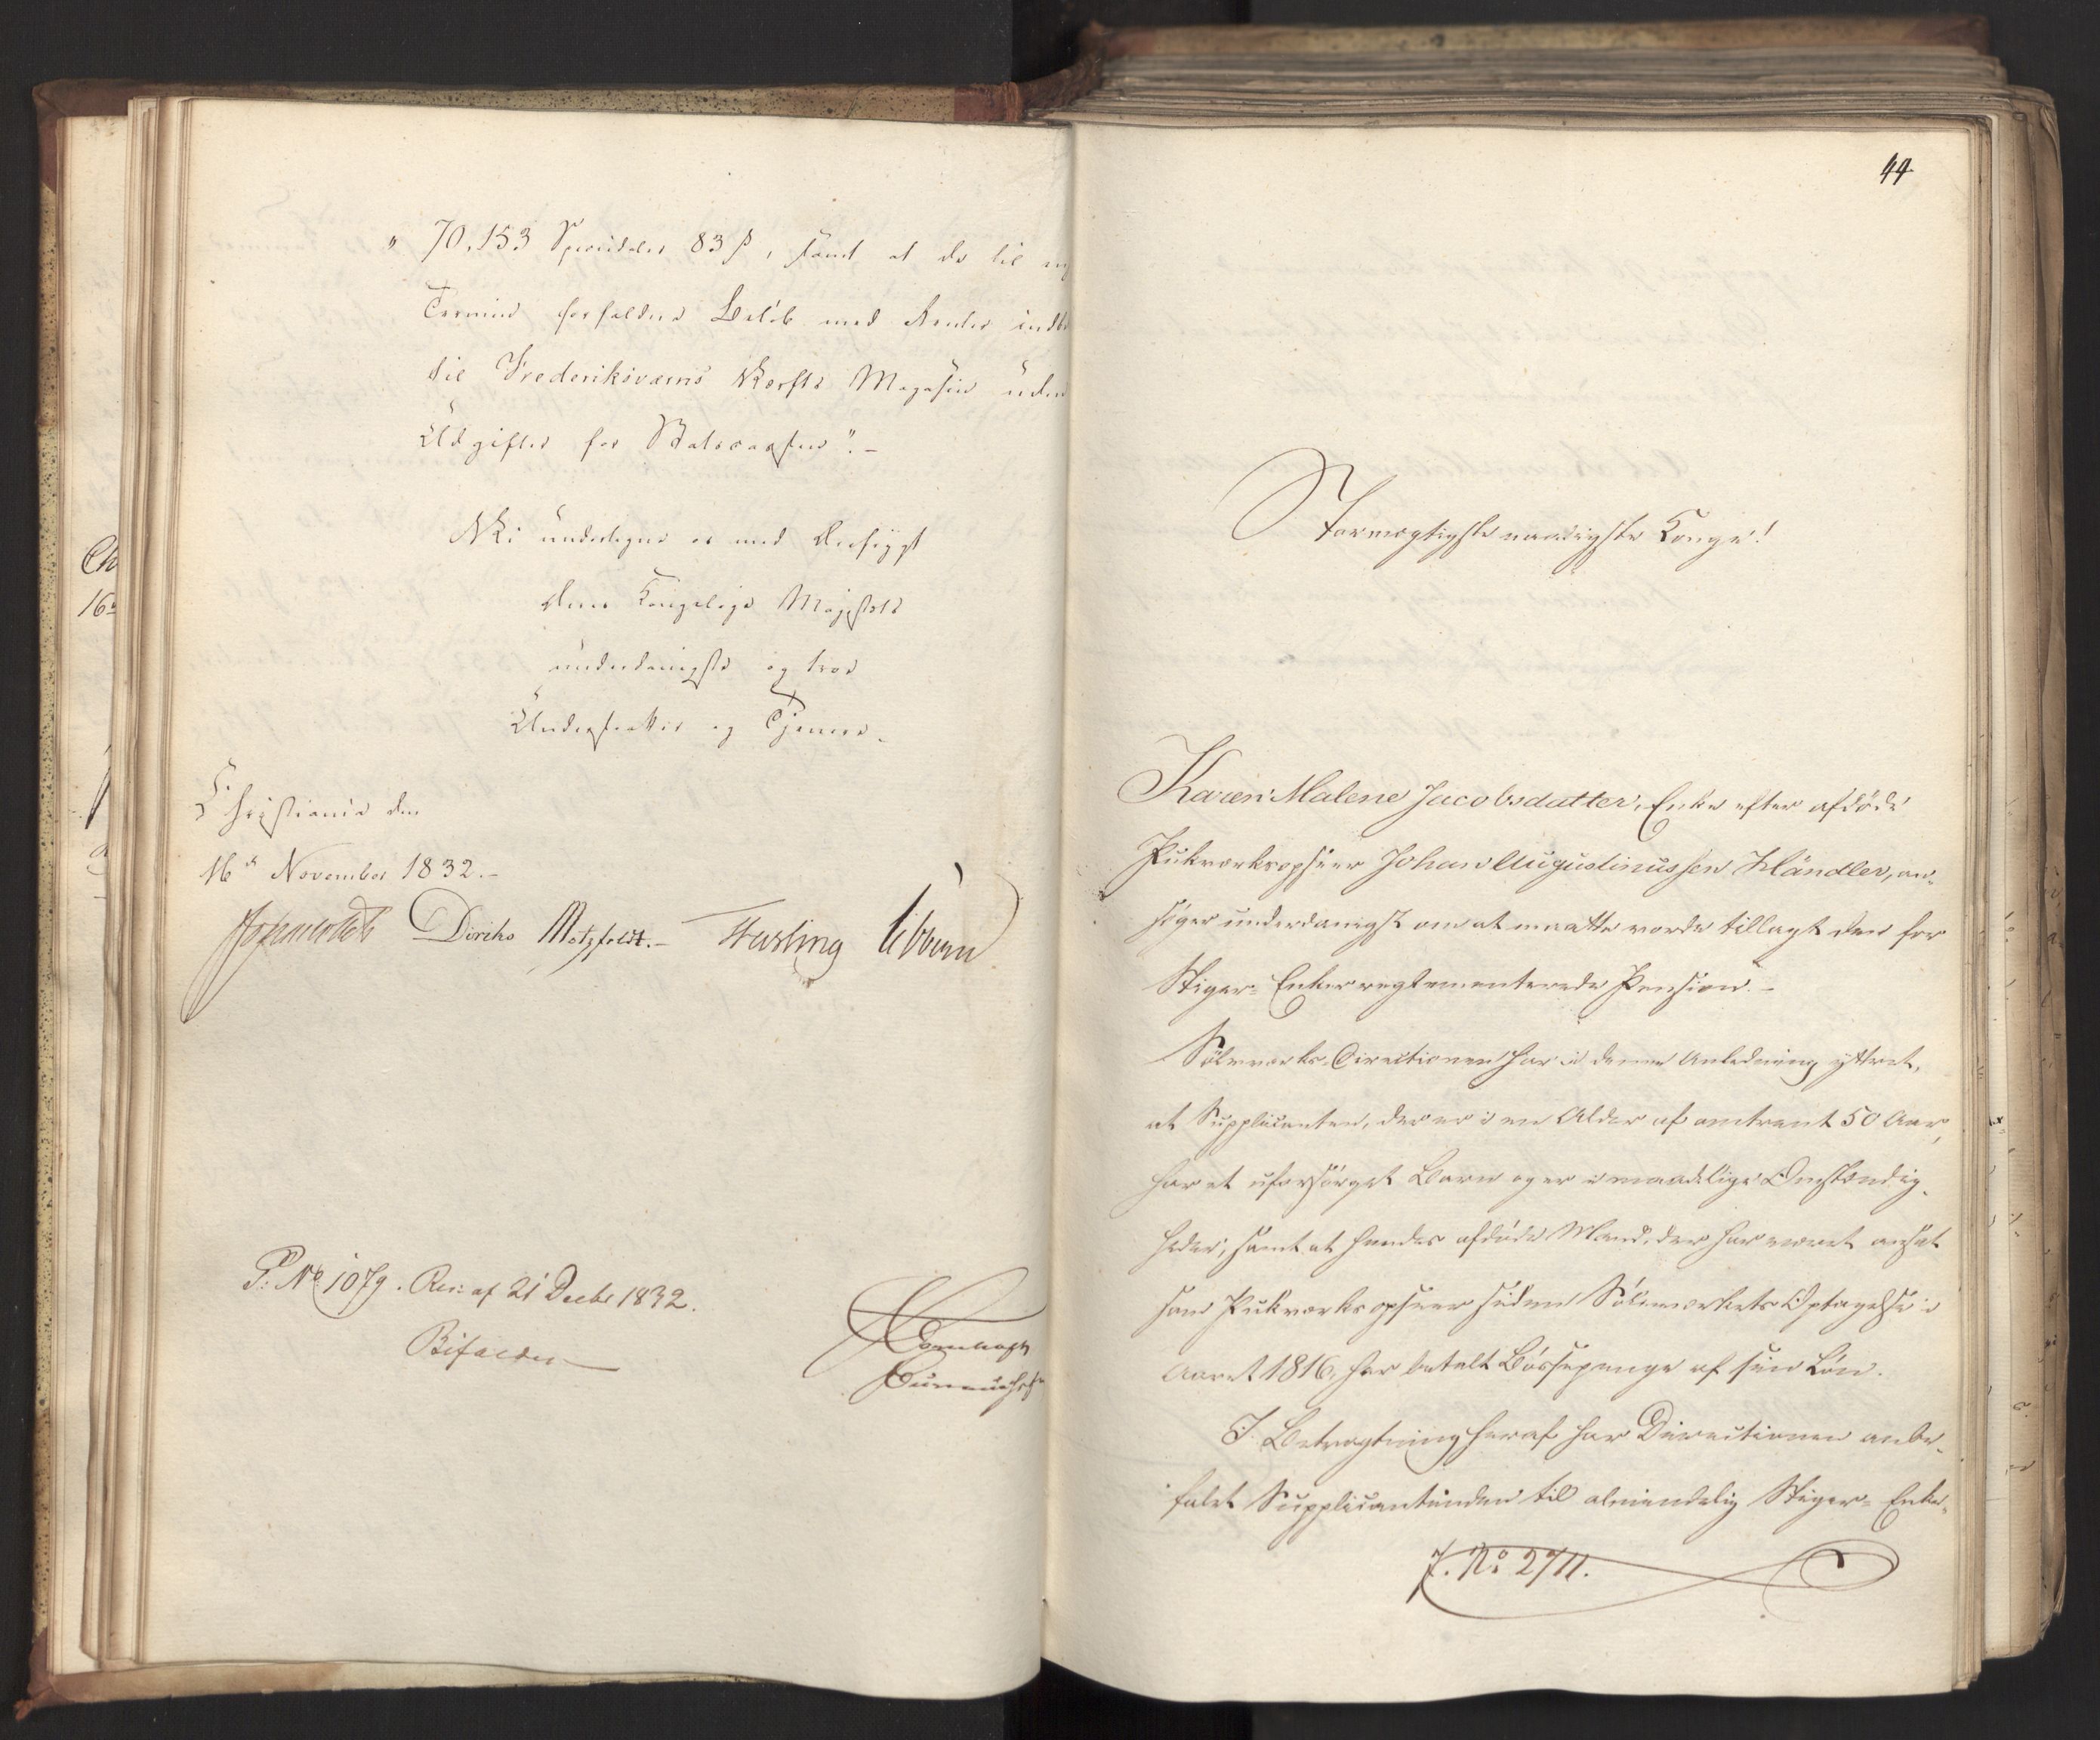 " 70,153 Speciedaler 83 ß, samt at de til
Termin forfaldne Beløb med Renter
til Frederiksværns Værfts Magasin uden
Udgifter for Statscassen".-
Vi undertegne os med Dybsigst
Deres Kongelige Majestets
underdanigste og troe
Undersaatter og Tjenere.
Christiania den
16d November 1832.-
Diriks Motzfeldt.- Fasting Vibe
P: No 1079. Res: af 21 Decbr 1832.
Bifaldes
Ch
16
44
Stormægtigste naadigste Konge!
Karen Malene Jacobsdatter, Enke efter afdøde
Pukværksopseer Johan Augustinussen Händler, an-
søger underdanigst om at maatte vorde tillagt den for
Stiger-Enker reglementerede Pension.-
Sølvværks-Directionen har i denne Anledning yttret,
at Supplicanten, der er i en Alder af omtrent 50 Aar,
har et uforsørget Barn og er i maadelige Omstændig-
heder, samt at hendes afdøde Mand, der har været ansat
som Pukværksopseer siden Sølvværkets Optagelse i
Aaret 1816, har betalt Bøssepenge af sin Løn.
I Betragtning heraf har Directionen anbe-
falet Supplicantinden til almindelig Stiger-Enke-
J. No 2711.